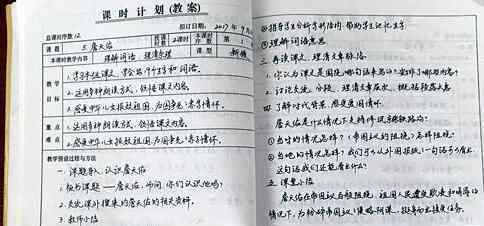 课时计划(教案)
授课日期: 2017年9月
总课时序数 12
课题 5.詹天佑 2课时 1
本课时教学内容 理解词语、理清条理 课型 新授
教学目标
1.学习本组课文,学会本课的生字和词语。
2.运用多种朗读方式,领悟课文内容。
3.感受中华儿女报效祖国、为国争光的赤子情怀。
重点难点
1.运用多种朗读方式,领悟课文内容。
2.感受中华儿女报效祖国、为国争光的赤子情怀。
教学预设过程与方法
一.课题导入,认识詹天佑
1.板书课题——詹天佑,师问:你们认识他吗?
2.交流课外搜集的詹天佑的相关资料。
3.教师小结
②指导学生分析字形结构,帮助学生记忆生字
③理解词语意思
三.再读课文,理清文章脉络。
1.你认为课文是围绕哪句话来写的?安排了哪些内容?
2.讨论交流,分段,理清文章层次,概括段落大意
四.了解时代背景,感受爱国情怀。
詹天佑是什么情况下主持修筑京张铁路的:
①当时的情况怎样?(帝国主义的阻挠,怎样阻挠)
②当地的情况怎样?我们可以从外国报纸一句话可以看出
这句话我们还能看出什么?
五.课堂小结
詹天佑在帝国主义百般阻挠,祖国人民遭受欺凌和侮辱的
情况下,为粉碎帝国主义侵略阴谋,挺身而出接受任务。